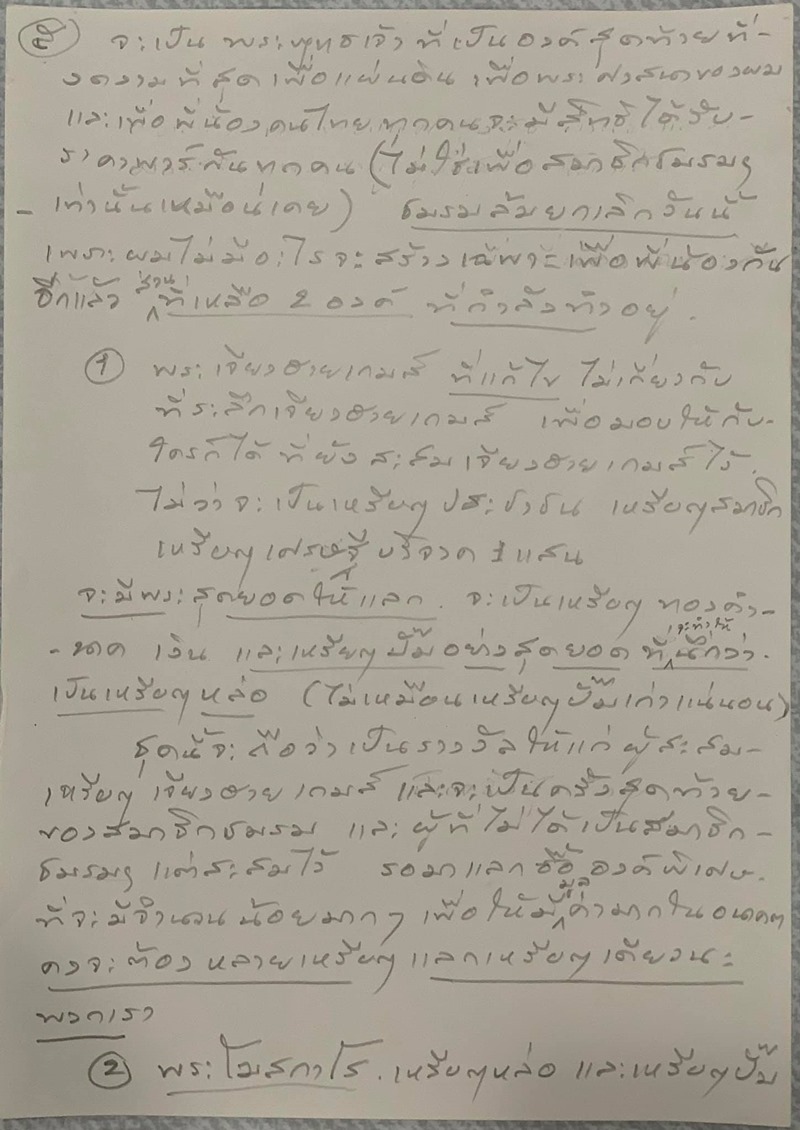 ๕ จะเป็น พระพุทธเจ้า ที่เป็นองค์สุดท้ายที่-
งดงามที่สุดเพื่อแผ่นดิน เพื่อพระศาสนาของผม
และเพื่อพี่น้องคนไทย ทุกคนจะมีสิทธิได้รับ-
ราคาพาร์กันทุกคน (ไม่ใช่เพื่อสมาชิกชมรมฯ
- เท่านั้นเหมือนเคย) ชมรมล้มยกเลิกวันนี้
เพราะผมไม่มีอะไรจะสร้างเฉพาะเพื่อพี่น้องกัน
อีกแล้ว ส่วนที่เหลือ 2 องค์ ที่กำลังทำอยู่.
① พระเจียงฮายเกมส์ ที่แก้ไข ไม่เกี่ยวกับ
ที่ระลึกเจียงฮายเกมส์ เพื่อมอบให้กับ-
ใครก็ได้ ที่ยังสะสมเจียงฮายเกมส์ไว้.
ไม่ว่าจะเป็นเหรียญประชาชน เหรียญสมาชิก
เหรียญเศรษฐีบริจาค 1 แสน
จะมีพระสุดยอดให้แลก. จะเป็นเหรียญ ทองคำ-
- นาค เงิน และเหรียญปั๊มอย่างสุดยอด ที่จะทำให้นึกว่า.
เป็นเหรียญหล่อ (ไม่เหมือนเหรียญปั๊มเก่าแน่นอน)
ชุดนี้จะถือว่าเป็นรางวัลให้แก่ผู้สะสม-
เหรียญเจียงฮายเกมส์ และจะเป็นครั้งสุดท้าย-
ของสมาชิกชมรม และผู้ที่ไม่ได้เป็นสมาชิก-
ชมรมฯ แต่สะสมไว้ รอมาแลกซื้อองค์พิเศษ.
ที่จะมีจำนวนน้อยมากๆ เพื่อให้มีมูลค่ามากในอนาคต
คงจะต้องหลายเหรียญแลกเหรียญเดียวนะ
พวกเรา
② พระโมสกาโร. เหรียญหล่อ และเหรียญปั๊ม